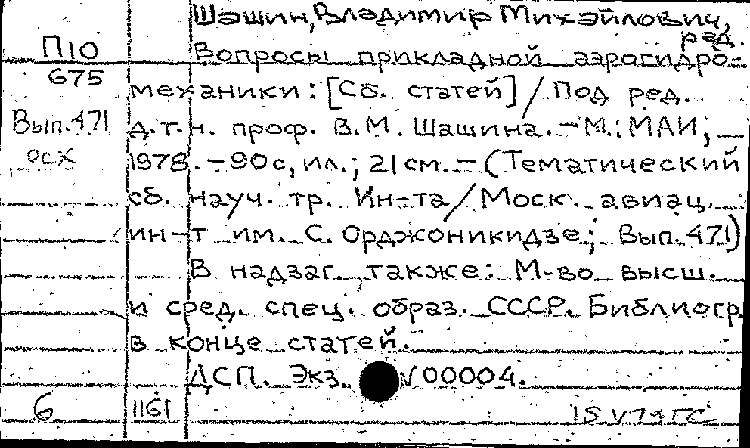 Шашин, Владимир Михайлович,
ред.
П10 Вопросы прикладной аэрогидро-
675 механики: [Сб. статей] / Под ред.
Вып. 471 д.т.н. проф. В.М. Шашина. – М.: МАИ,
осх 1978. – 90 с, ил.; 21 см. – (Тематический
сб. науч. тр. Ин-та / Моск. авиац.
ин-т им. С. Орджоникидзе; Вып. 471)
В надзаг. также: М-во высш.
и сред. спец. образ. СССР. Библиогр
в конце статей.
ДСП. Экз. √00004.
6 1161